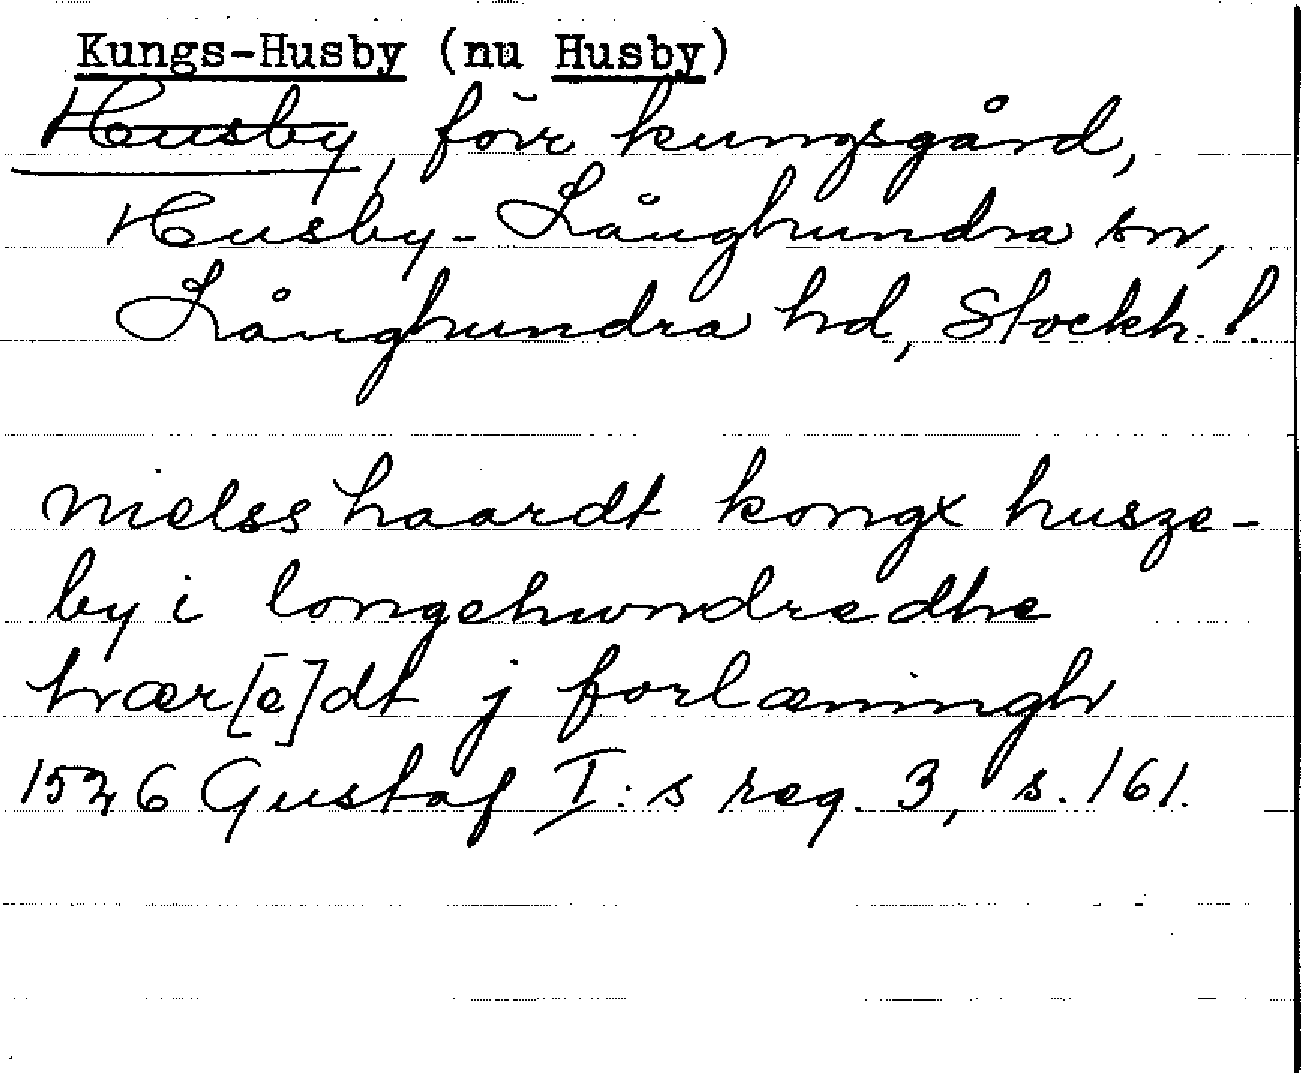 Kungs-Husby (nu Husby)
Husby, förr kungsgård,
Husby-Långhundra sn,
Långhundra hd, Stockh. l.
nielss haardt kongx husze-
by i longehwndredhe
hvær[e]dt j forlæningh
1526 Gustaf I:s reg. 3, s. 161.